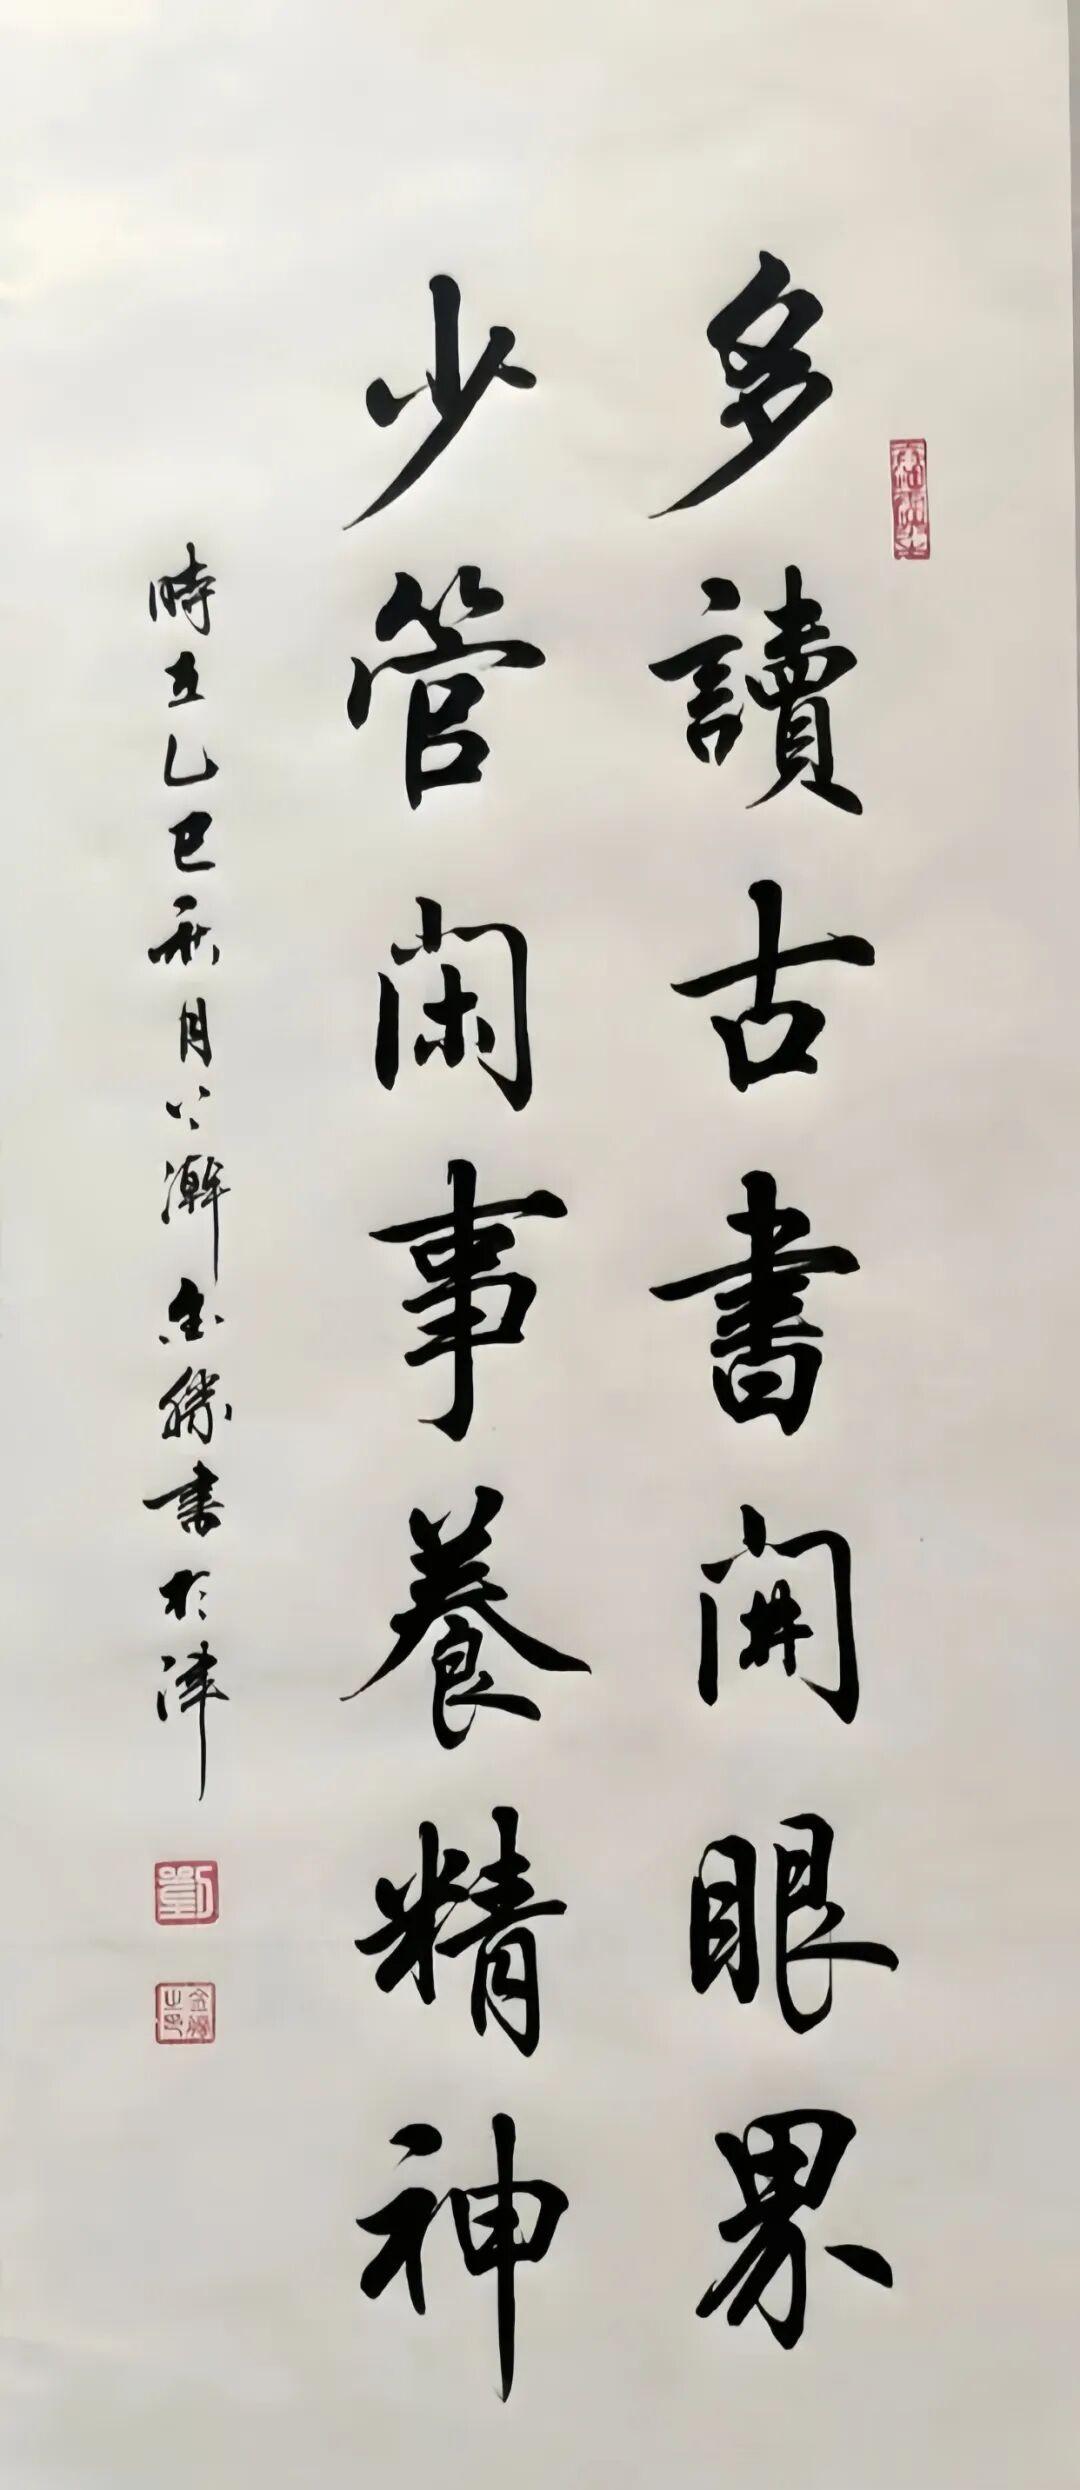 多讀古書開眼界
少管閑事養精神
時在乙巳秋月 金勝書於津
劉
金勝之印